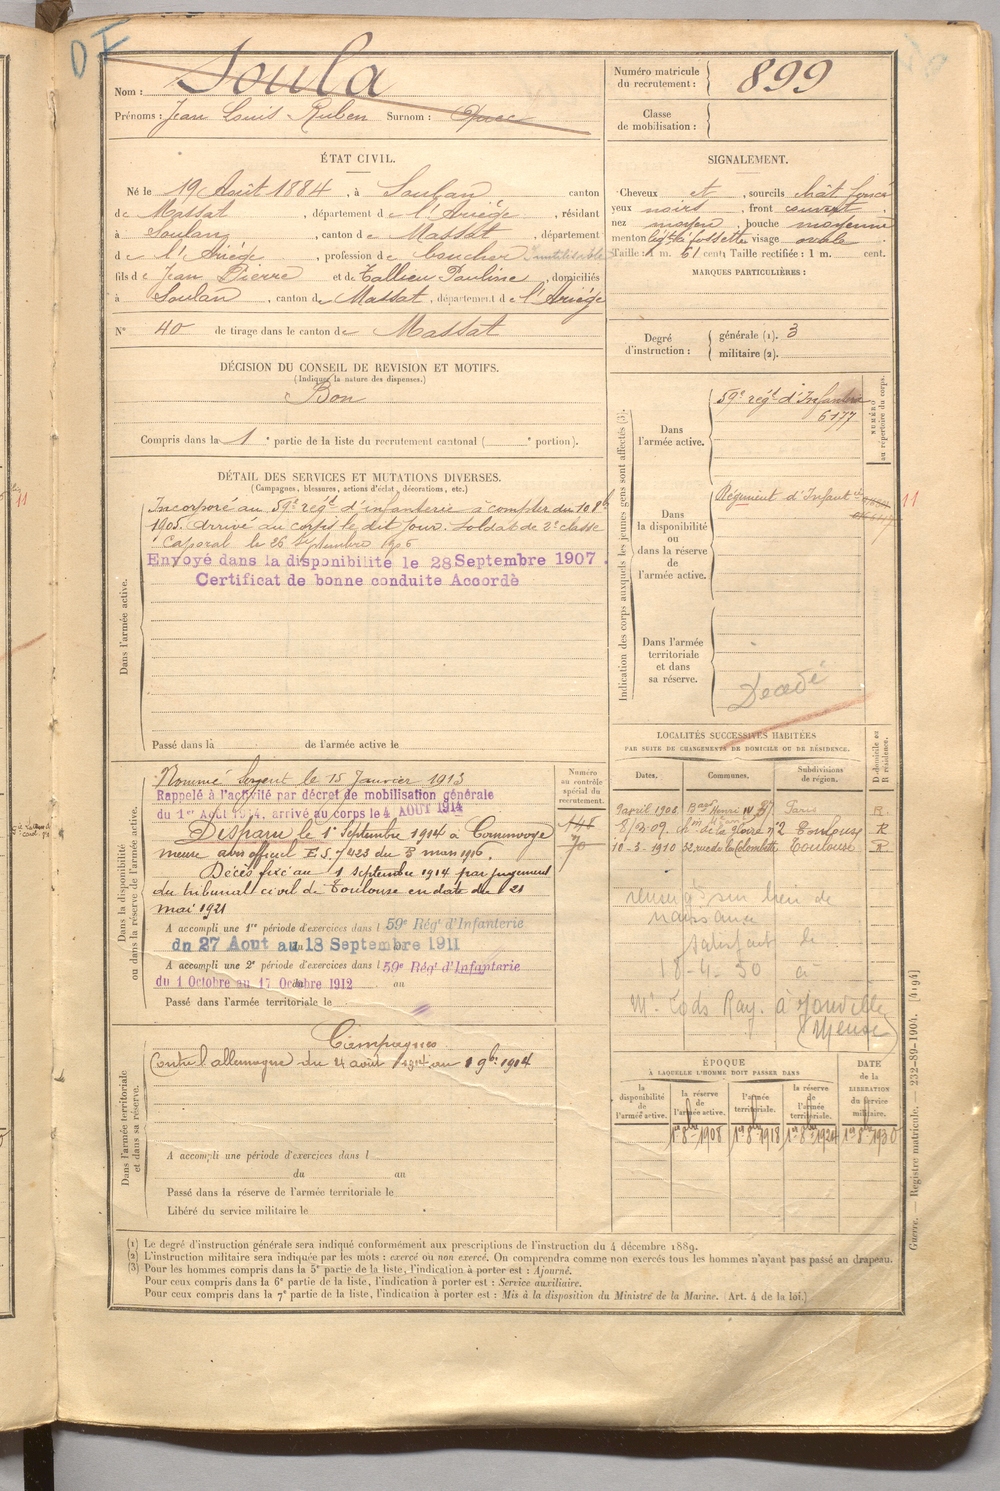 DF
Nom : Soula
Prénoms : Jean Louis Ruben Surnom :
Numéro matricule du recrutement : 899
Classe de mobilisation :
ÉTAT CIVIL.
Né le 19 Août 1884, à Soulan canton
de Massat, département de l'Ariège, résidant
à Soulan, canton de Massat, département
de l'Ariège, profession de boucher
fils de Jean Pierre et de Tallieu Pauline, domiciliés
à Soulan, canton de Massat, département de l'Ariège
N° 40 de tirage dans le canton de Massat
SIGNALEMENT.
Cheveux et, sourcils chât foncé
yeux noirs, front couvert
nez moyen, bouche moyenne
menton à fossette visage ovale
Taille : 1 m. 61 cent; Taille rectifiée : 1 m. cent.
MARQUES PARTICULIÈRES :
Degré d'instruction :
générale (1). 3
militaire (2).
DÉCISION DU CONSEIL DE REVISION ET MOTIFS.
(Indiquer la nature des dispenses.)
Bon
Compris dans la 1e partie de la liste du recrutement cantonal ( e portion).
Indication des corps auxquels les jeunes gens sont affectés (3).
NUMÉRO au répertoire du corps.
Dans l'armée active.
59e régt d'Infanterie
6177
Dans la disponibilité ou dans la réserve de l'armée active.
Régiment d'Infant
11
Dans l'armée territoriale et dans sa réserve.
Décédé
DÉTAIL DES SERVICES ET MUTATIONS DIVERSES.
(Campagnes, blessures, actions d'éclat, décorations, etc.)
Dans l'armée active.
Incorporé au 59e régt d'infanterie à compter du 10 8bre
1905. Arrivé au corps le dit jour. Soldat de 2e classe
Caporal le 26 Septembre 1906
Envoyé dans la disponibilité le 28 Septembre 1907.
Certificat de bonne conduite Accordé
Passé dans la de l'armée active le
Dans la disponibilité ou dans la réserve de l'armée active.
Nommé Sergent le 15 Janvier 1913
Rappelé à l'activité par décret de mobilisation générale
du 1er Aout 1914, arrivé au corps le 4 AOUT 1914
Disparu le 1er Septembre 1914 à
meuse avis officiel E S. 7423 du 3 mars 1916.
Décès fixé au 1 septembre 1914 par jugement
du tribunal civil de Toulouse en date du 21
mai 1921
A accompli une 1re période d'exercices dans l 59e Régt d'Infanterie
du 27 Aout au 18 Septembre 1911
A accompli une 2e période d'exercices dans l 59e Régt d'Infanterie
du 1 Octobre au 17 Octobre 1912 au
Passé dans l'armée territoriale le
Numéro au contrôle spécial du recrutement.
70
LOCALITÉS SUCCESSIVES HABITÉES
PAR SUITE DE CHANGEMENTS DE DOMICILE OU DE RÉSIDENCE.
Dates. Communes. Subdivisions de région. D. domicile ou R. résidence.
9 avril 1908 Bard Henri IV Paris R.
8/2.09. de la gloire n° 2 Toulouse R
10-3-1910 32, rue de la Colombette Toulouse R.
lieu de
naissance
satisfait le
18-4-30 à
Mr. Ray. à Joinville
(Meuse)
ÉPOQUE
À LAQUELLE L'HOMME DOIT PASSER DANS
la disponibilité de l'armée active.
la réserve de l'armée active.
l'armée territoriale.
la réserve de l'armée territoriale.
DATE de la LIBÉRATION du service militaire.
1er 8bre 1908 1er 8bre 1918 1er 8bre 1924 1er 8bre 1930
Dans l'armée territoriale et dans sa réserve.
Campagnes
Contre l'allemagne du 4 août 1914 au 1 9bre 1914
A accompli une période d'exercices dans l
du au
Passé dans la réserve de l'armée territoriale le
Libéré du service militaire le
(1) Le degré d'instruction générale sera indiqué conformément aux prescriptions de l'instruction du 4 décembre 1889.
(2) L'instruction militaire sera indiquée par les mots : exercé ou non exercé. On comprendra comme non exercés tous les hommes n'ayant pas passé au drapeau.
(3) Pour les hommes compris dans la 5e partie de la liste, l'indication à porter est : Ajourné.
Pour ceux compris dans la 6e partie de la liste, l'indication à porter est : Service auxiliaire.
Pour ceux compris dans la 7e partie de la liste, l'indication à porter est : Mis à la disposition du Ministre de la Marine. (Art. 4 de la loi.)
Guerre. — Registre matricule. — 232-89-1904. [4194]